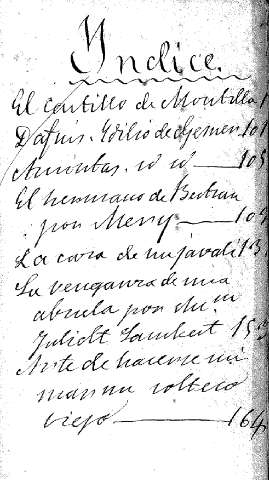 Yndice.
El castillo de Montilla 1
Dafnis. Ydilio de Gesner 101
Amintas. id id — 105
El hermano de Bertran
por Mery — 109
La caza de un javali 131
La venganza de una
abuela por
Juliette Lambert 153
Arte de hacerse un
mismo soltero
viejo — 164